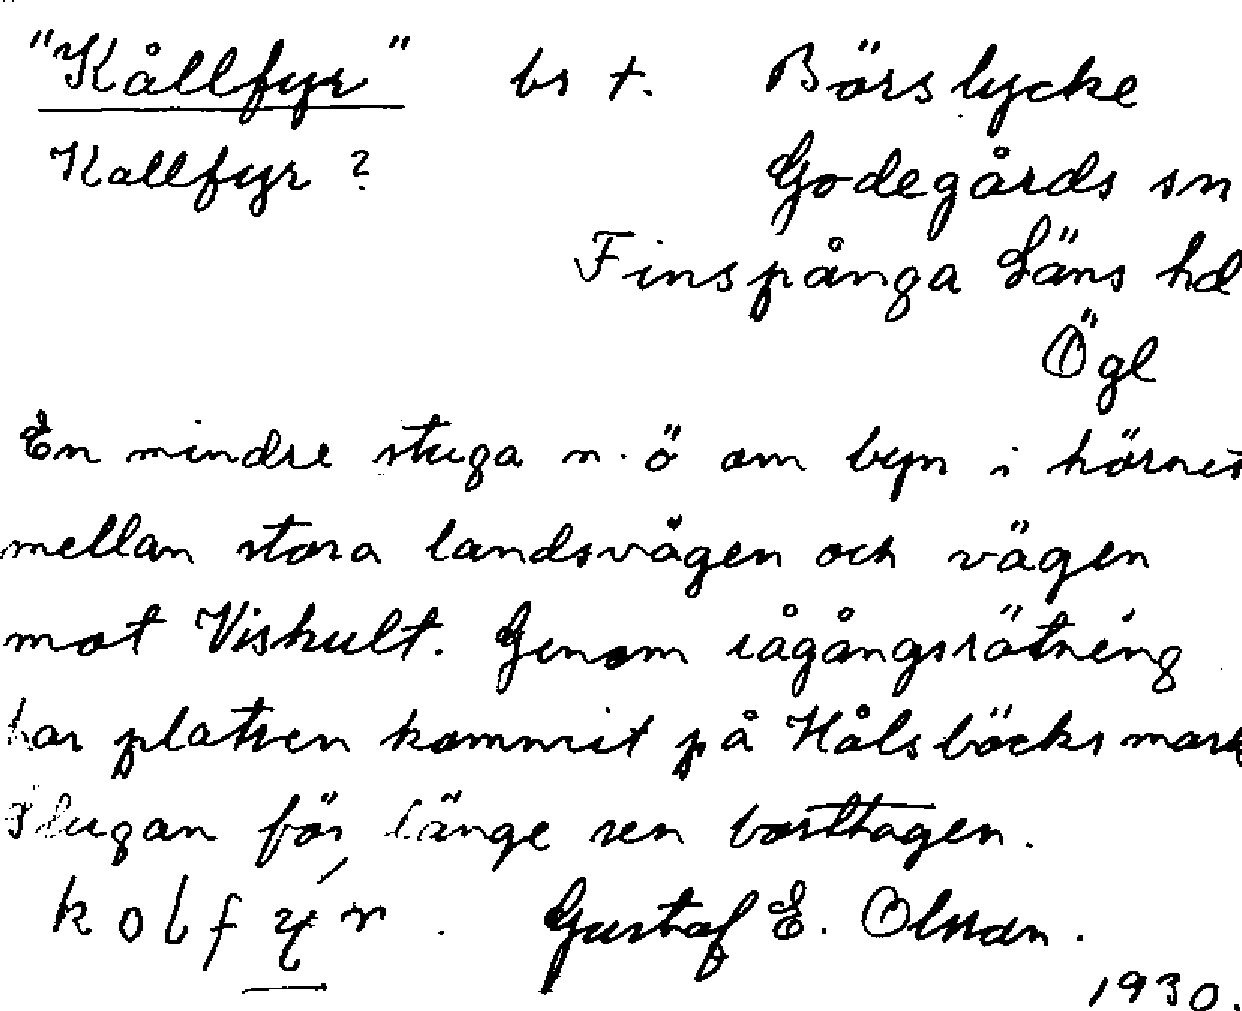 "Kållfyr" bs t. Börslycke
Kallfyr? Godegårds sn
Finspånga Läns hd
Ögl
En mindre stuga n.ö om byn i hörnet
mellan stora landsvägen och vägen
mot Viskult. Genom rågångsrätning
har platsen kommit på Hålsböcks mark
Stugan för länge sen borttagen.
kolfýr. Gustaf E. Olsson.
1930.